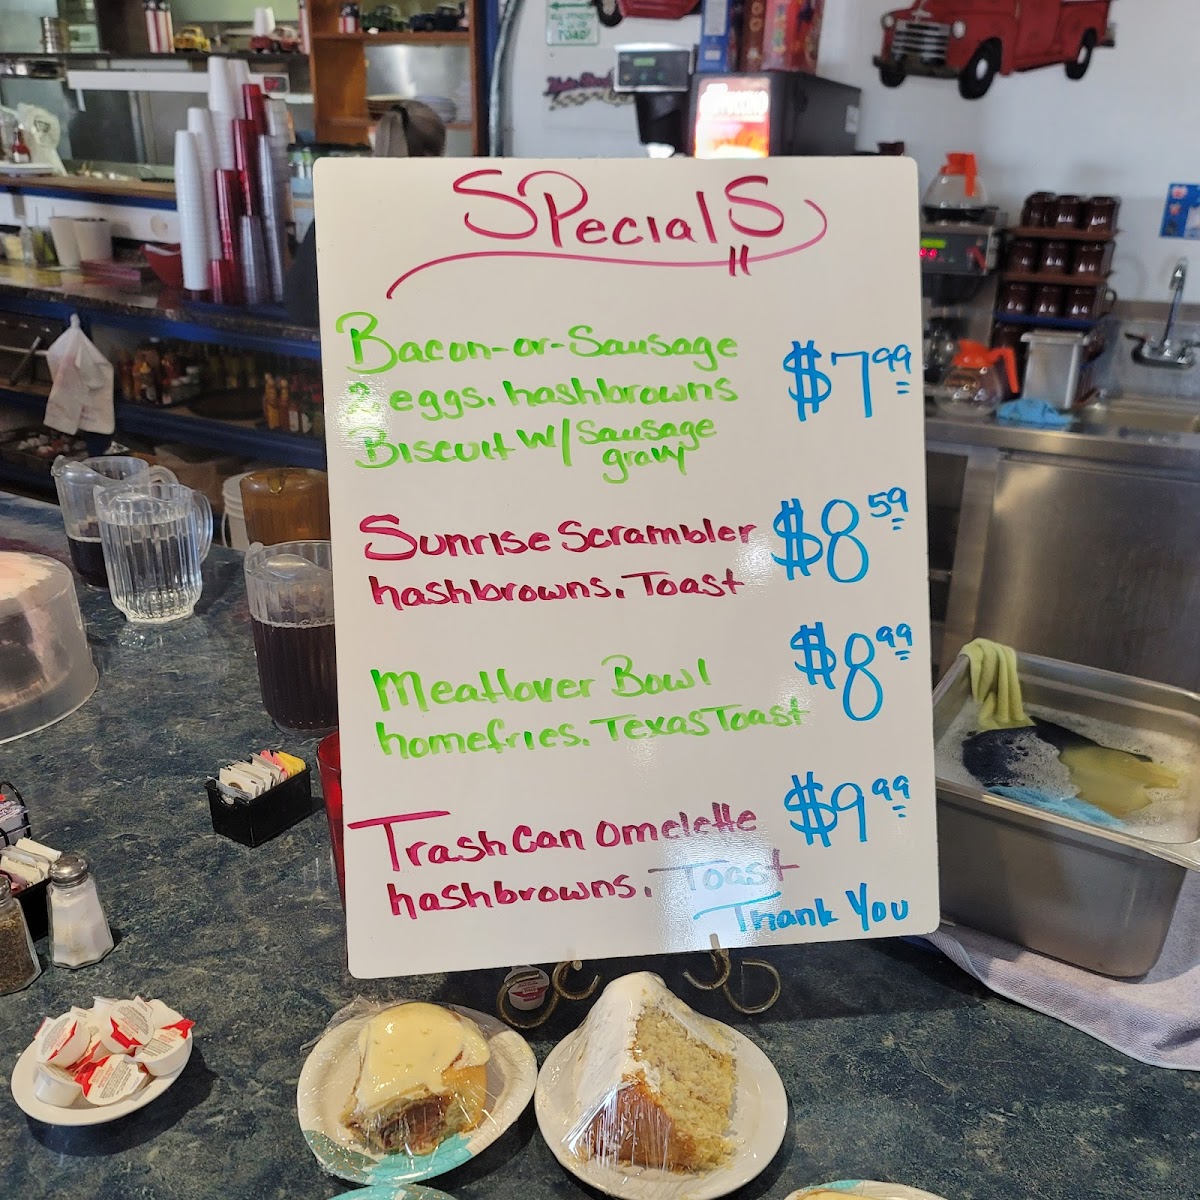 Specials
Bacon-or-Sausage
2 eggs. hashbrowns
Biscuit w/ Sausage
gravy
$7.99
Sunrise Scrambler
hashbrowns. Toast
$8.59
Meatlover Bowl
homefries. Texas Toast
$8.99
Trash Can omelette
hashbrowns. Toast
$9.99
Thank You